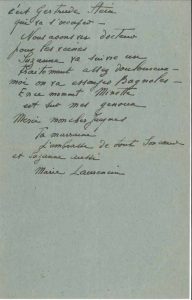 c'est Gertrude Stein
qui va s'occuper —
Nous avons vu docteur
pour les reines
Suzanne va suivre un
traitement assez douloureux —
moi on va essayer Bagnoles —
En ce moment Minotte
est sur mes genoux
Merci mon cher
Ta marraine
t'embrasse de tout son coeur
et Suzanne aussi
Marie Laurencin